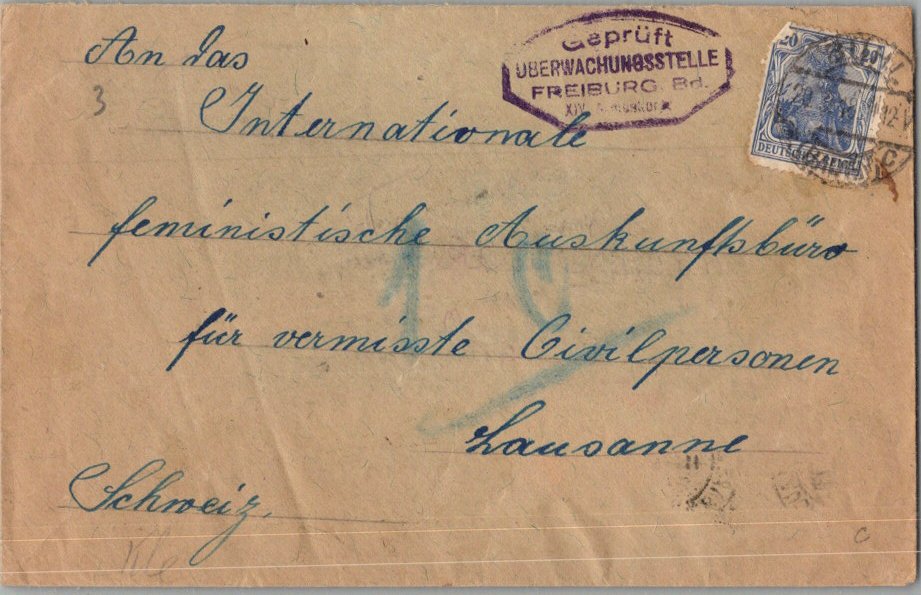 An das
Internationale
feministische Auskunftsbüro
für vermisste Civilpersonen
Lausanne
Schweiz.
Geprüft
ÜBERWACHUNGSSTELLE
FREIBURG Bd.
XIV.
20 20
DEUTSCHES REICH
12 V
C
3